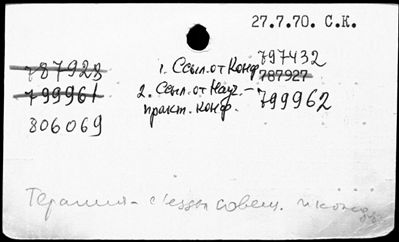 27.7.70. С.К.
787928
1. Ссыл. от Конф. 797432
787927
799961
2. Ссыл. от Науч.-
практ. конф. 799962
806069
Терапия - съезды совещ. и конф.